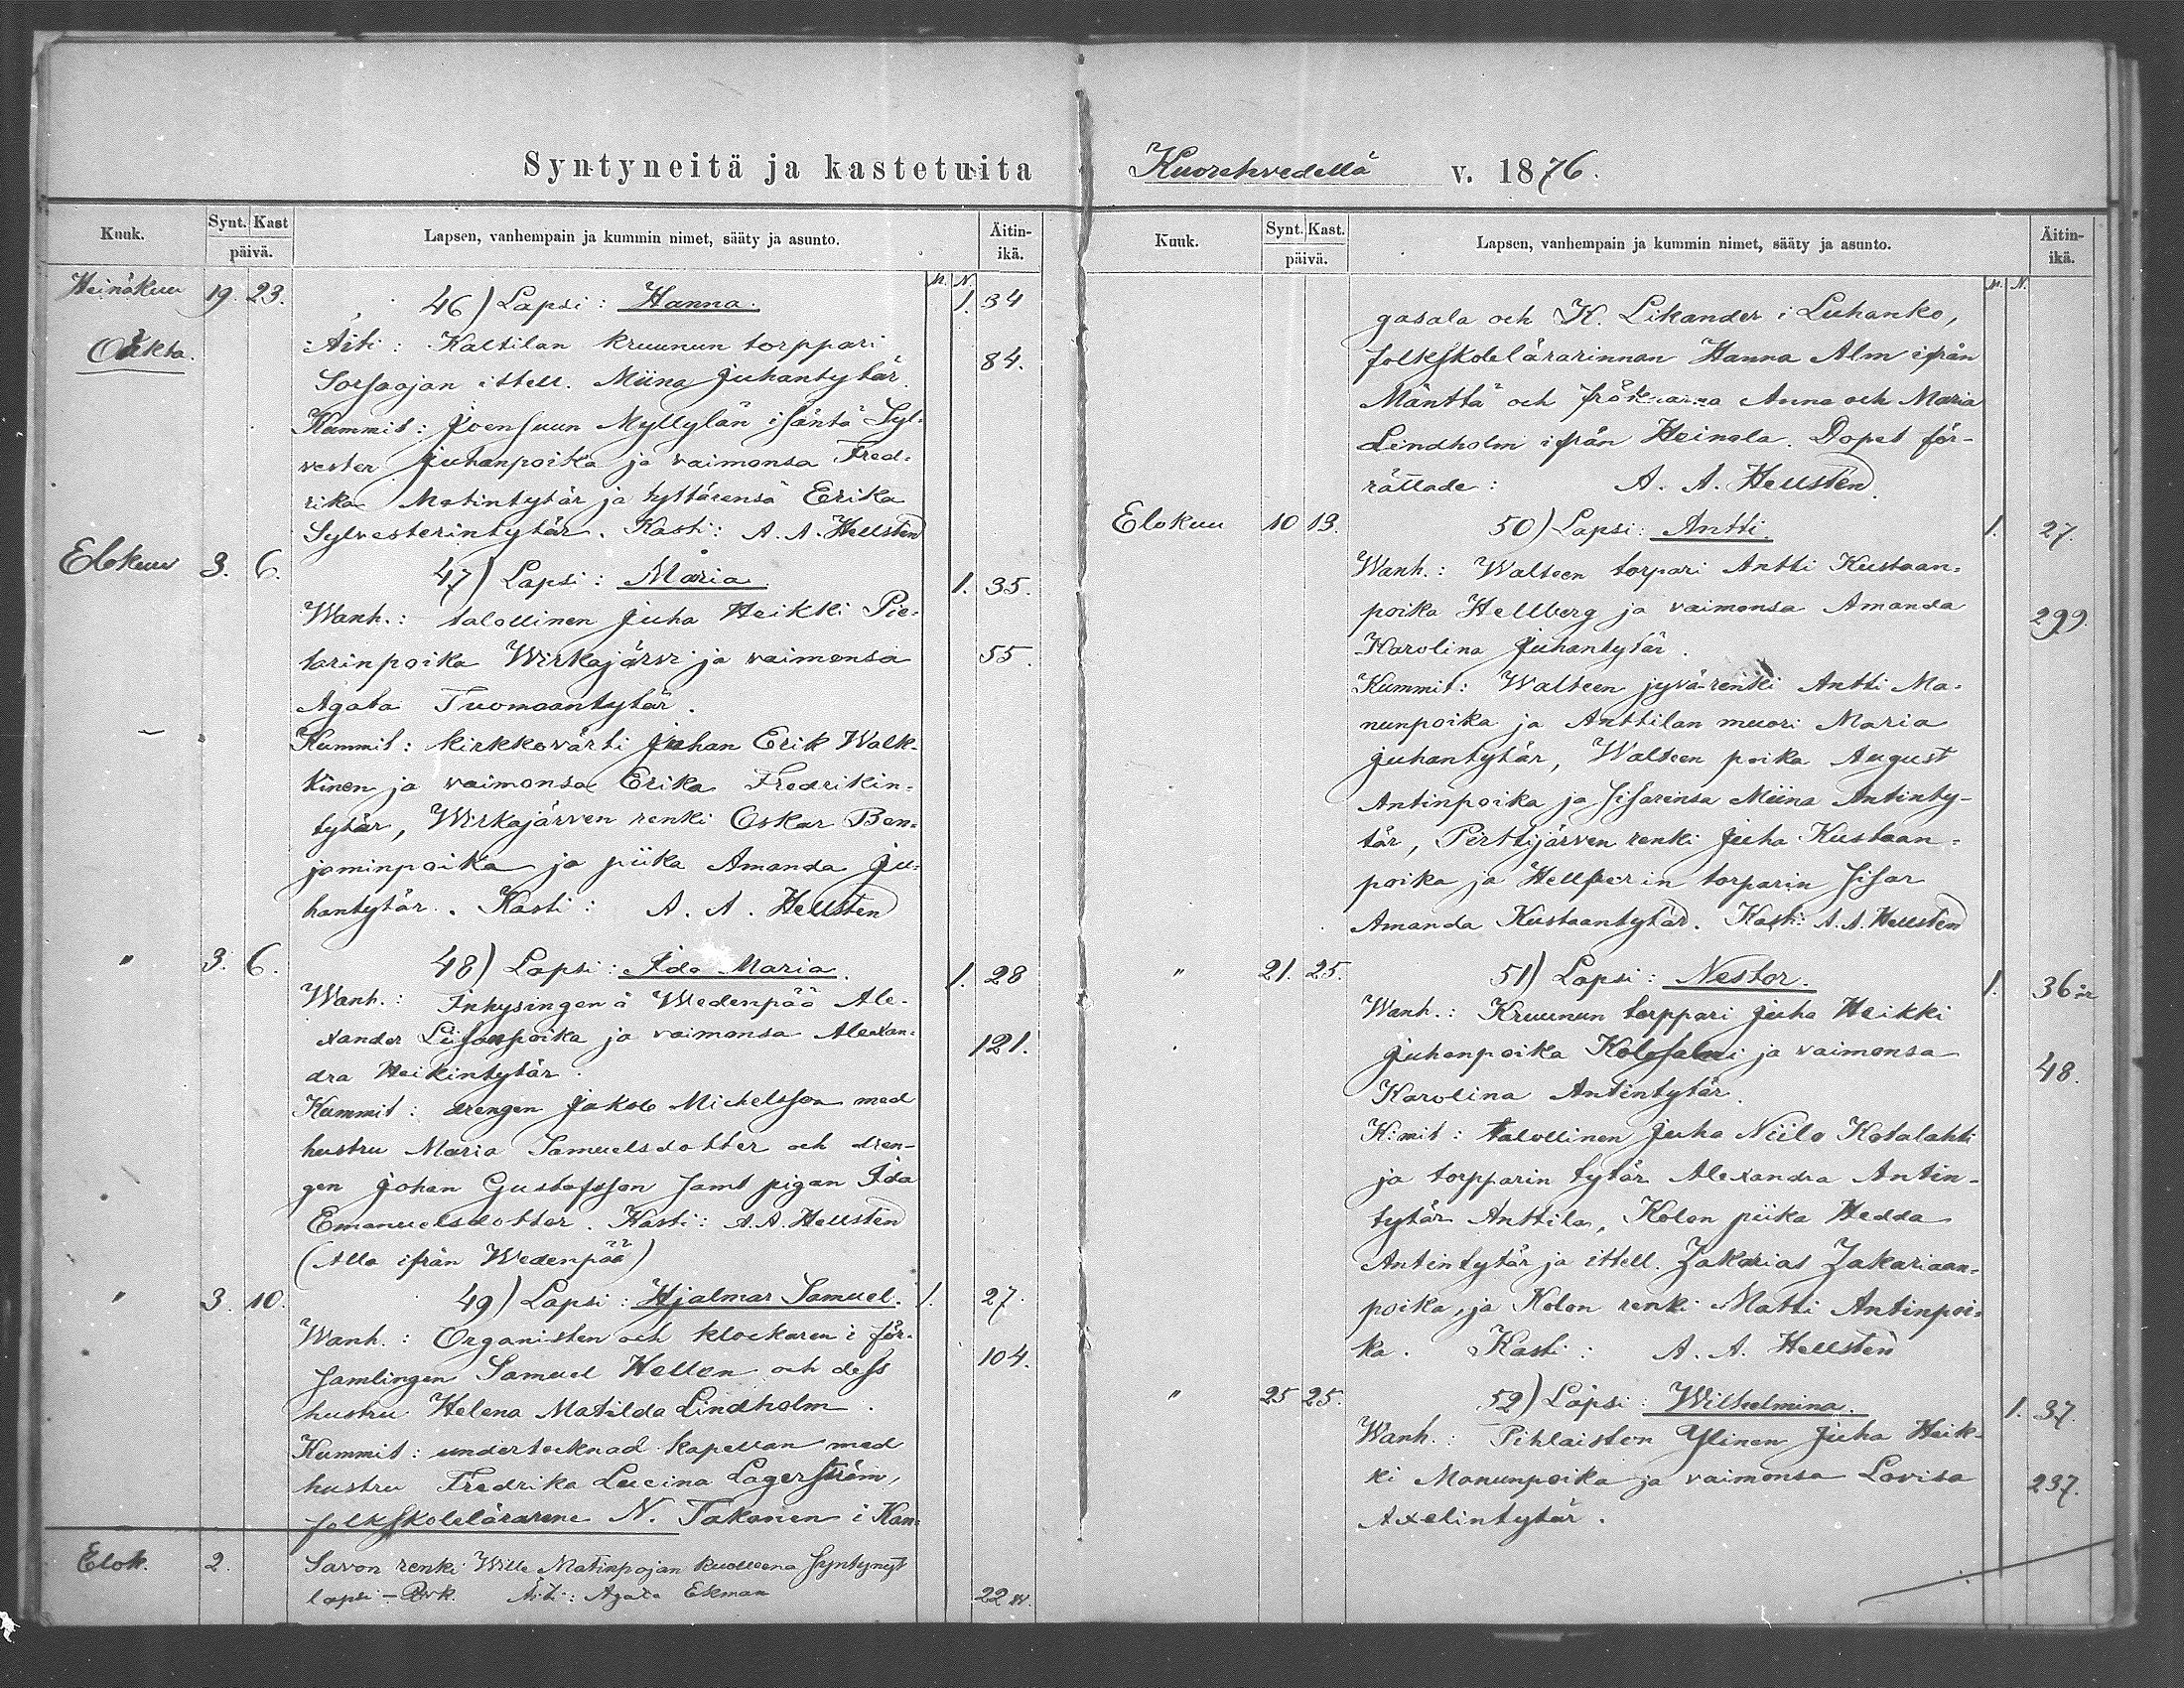 Syntyneitä ja kastetuita
Kuuk. Synt. Kast päivä. Lapsen, vanhempain ja kummin nimet, sääty ja asunto. Äitin-ikä.
M. N.
Heinäkuu 19. 23. 46) Lapsi: Hanna. 1. 34
Oäkta. Äiti: Kaltilan kruunun torppari
Sorsaojan ittell. Miina Juhantytär. 84.
Kummit: Joensuun Myllylän isäntä Syl-
vester Juhanpoika ja vaimonsa Fred-
rika Matintytär ja tyttärensä Eerika
Sylvesterintytär. Kasti: A. A. Hellsten
Elokuu 3. 6. 47) Lapsi: Maria. 1. 35.
Wanh.: talollinen Juha Heikki Pie-
tarinpoika Wirkajärvi ja vaimonsa 55.
Agata Tuomaantytär.
Kummit: kirkkovärti Juhan Erik Walk-
kinen ja vaimonsa Erika Fredrikin-
tytär, Wirkajärven renki Oskar Ben-
jaminpoika ja piika Amanda Ju-
hantytär. Kasti: A. A. Hellsten
" 3. 6. 48) Lapsi: Ida Maria. 1. 28
Wanh.: Inhysingen å Wedenpää Ale-
xander Liisanpoika ja vaimonsa Alexan- 121.
dra Heikintytär.
Kummit: drengen Jakob Michelsson med
hustru Maria Samuelsdotter och dren-
gen Johan Gustafsson samt pigan Ida
Emanuelsdotter. Kasti: A. A. Hellsten
(Alla ifrån Wedenpää)
" 3. 10. 49) Lapsi: Hjalmar Samuel. 1. 27.
Wanh.: Organisten och klockaren i för-
samlingen Samuel Hellen och dess 104.
hustru Helena Matilda Lindholm.
Kummit: undertecknad kapellan med
hustru Fredrika Lucina Lagerström,
folkskolelärarene N. Takanen i Kan-
Elok. 2. Savon renki Wille Matinpojan kuolleena syntynyt
lapsi – Äiti: Agata Ekman 22 w.
Kuorehvedellä v. 1876.
Kuuk. Synt. Kast. päivä. Lapsen, vanhempain ja kummin nimet, sääty ja asunto. Äitin-ikä.
M. N.
gasala och K. Likander i Luhanko,
folkskolelärarinnan Hanna Alm ifrån
Mänttä och fröknarna Anna och Maria
Lindholm ifrån Heinola. Dopet för-
rättade: A. A. Hellsten.
Elokuu 10 13. 50) Lapsi: Antti. 1. 27.
Wanh.: Walteen torpari Antti Kustaan-
poika Hellberg ja vaimonsa Amanda 299.
Karolina Juhantytär.
Kummit: Walteen jyvä-renki Antti Ma-
nunpoika ja Anttilan muori Maria
Juhantytär, Walteen poika August
Antinpoika ja sisarensa Miina Antinty-
tär, Perttijärven renki Juha Kustaan-
poika ja Hellberin torparin sisar
Amanda Kustaantytär. Kasti: A. A. Hellsten
" 21. 25. 51) Lapsi: Nestor. 1. 36 år
Wanh.: Kruunun torppari Juha Heikki
Juhanpoika Kolosalmi ja vaimonsa 48.
Karolina Antintytär.
K:mit: talollinen Juha Niilo Kotalahti
ja torpparin tytär Alexandra Antin-
tytär Anttila, Kolon piika Hedda
Antintytär ja ittell. Zakarias Zakariaan-
poika, ja Kolon renki Matti Antinpoi-
ka. Kasti: A. A. Hellsten
" 25 25. 52) Lapsi: Wilhelmina. 1. 37.
Wanh.: Pihlaiston Ylinen Juha Heik-
ki Manunpoika ja vaimonsa Lovisa 237.
Axelintytär.